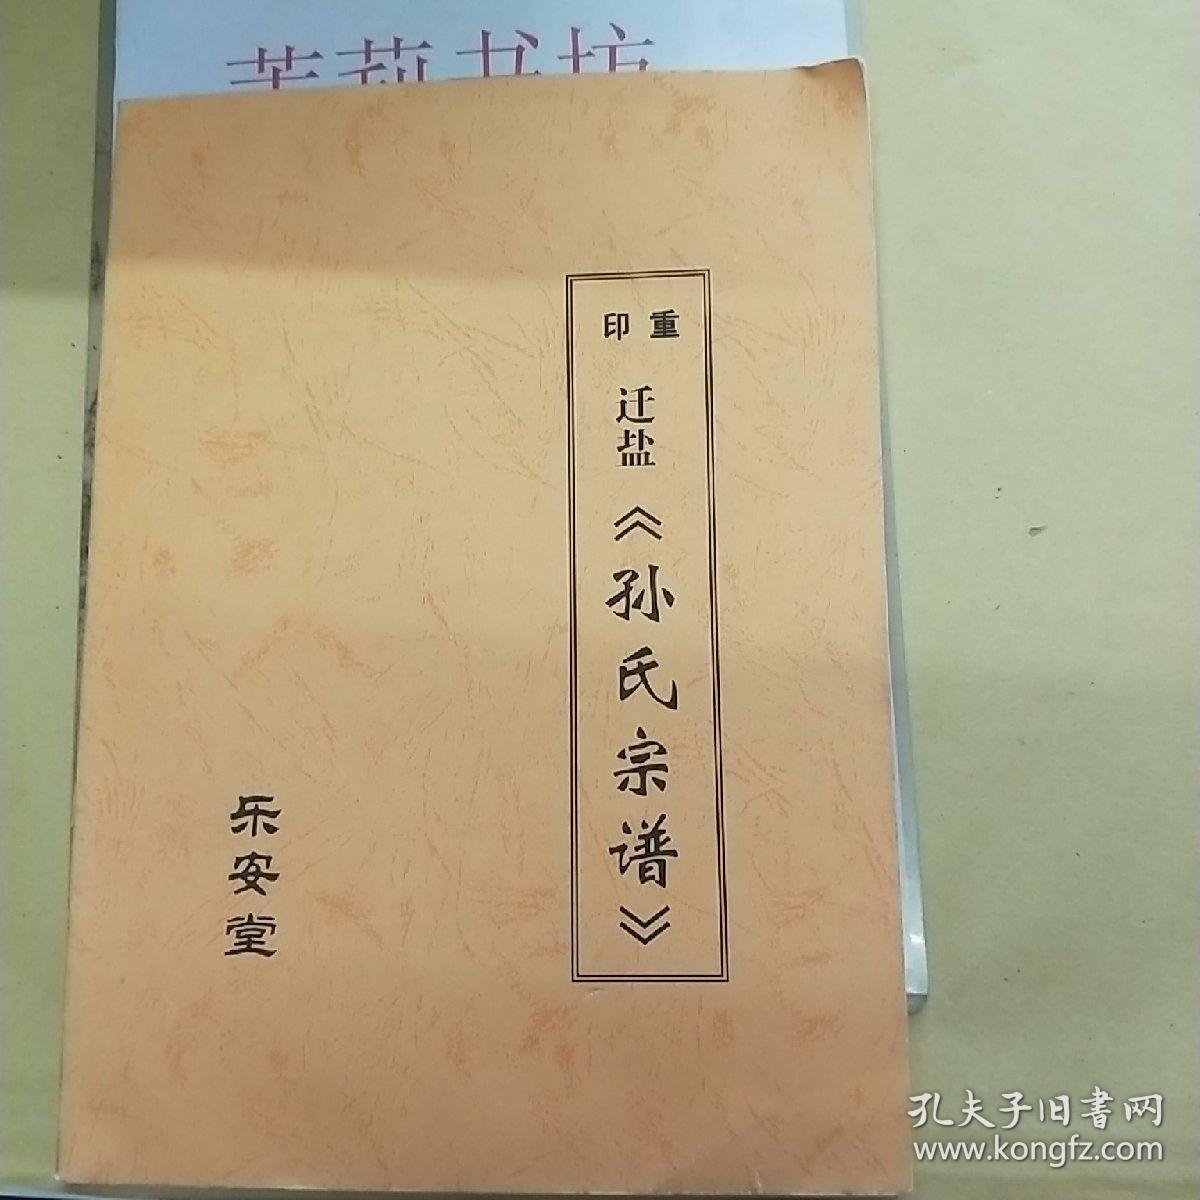 茉莉书坊
印 重
迁盐《孙氏宗谱》
乐安堂
孔夫子旧书网
www.kongfz.com